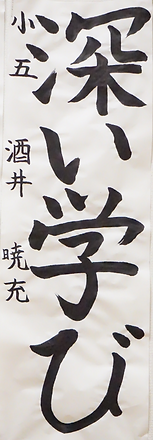 深い学び
小五 酒井 暁充